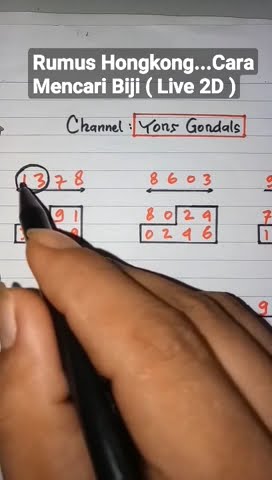 Rumus Hongkong...Cara
Mencari Biji ( Live 2D )
Channel : Yons Gondals
1378 8603 9
91 8029 7
0246 1
9